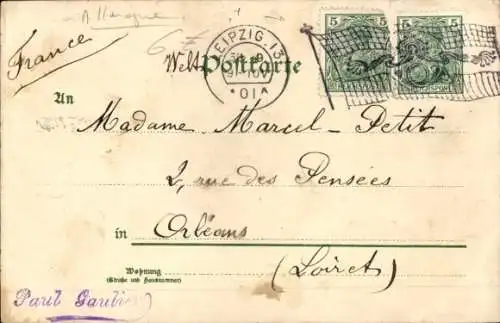 Allemagne
France
LEIPZIG.13
*01 A
5 5 5 5
Weltpostkarte
An
Madame Marcel-Petit
2, rue des Pensées
in Orléans
Wohnung
(Straße und Hausnummer)
(Loiret)
Paul Gautier